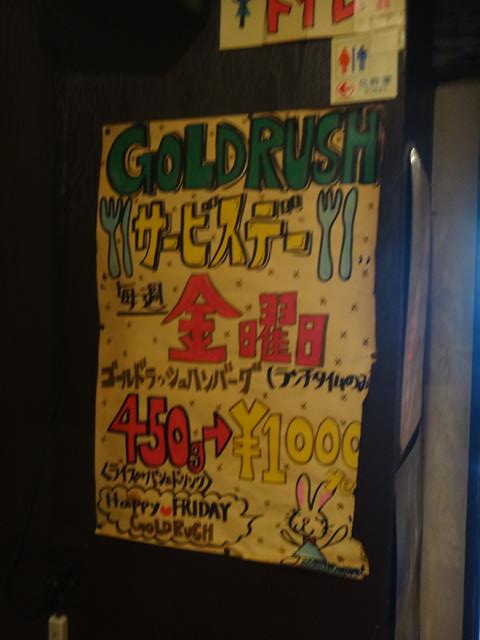 トイレ
化粧室
GOLDRUSH
サービスデー
毎週
金曜日
ゴールドラッシュハンバーグ (ランチタイムのみ
450g→¥1000
(ライスorパン&ドリンク)
Happy FRIDAY
GOLDRUSH